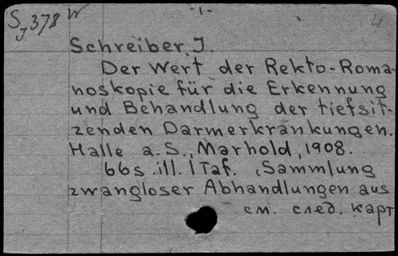 S₃378 W -1- 4
Schreiber, J.
Der Wert der Rekto-Roma-
noskopie für die Erkennung
und Behandlung der tiefsit-
zenden Darmerkrankungen.
Halle a.S., Marhold, 1908.
66s. ill. 1 Taf. (Sammlung
zwangloser Abhandlungen aus
см. след. карт